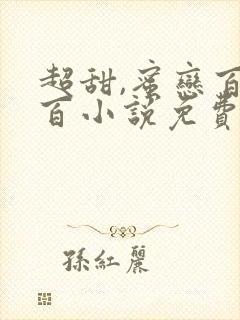 超甜,蜜戀百
百小說免費
孫紅麗